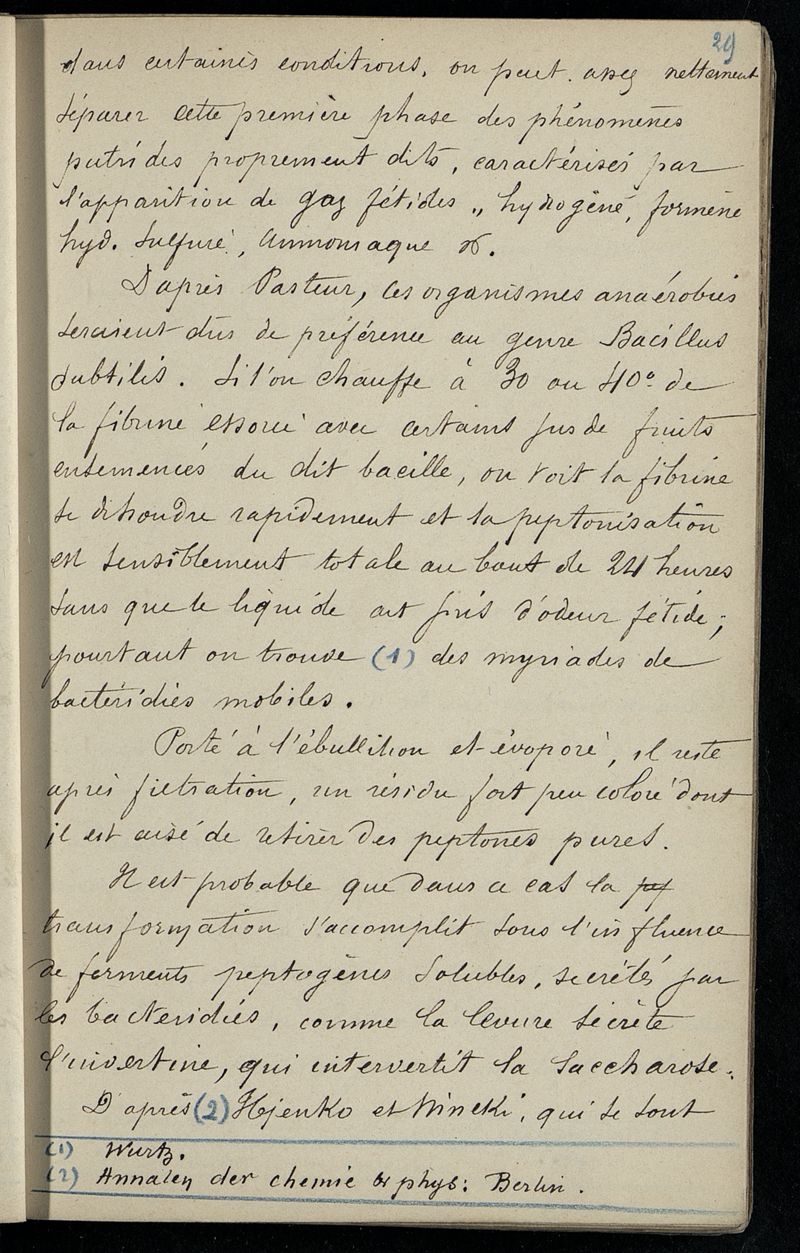 29
dans certaines conditions, on peut assez nettement
séparer cette première phase des phénomènes
putrides proprement dits, caractérisés par
l'apparition de gaz fétides „ hydrogène, formène
hyd. sulfuré, ammoniaque &.
D'après Pasteur, ces organismes anaérobies
seraient dus de préférence au genre Bacillus
subtilis. Si l'on chauffe à 30 ou 40° de
la fibrine essorée avec certains jus de fruits
ensemencés du dit bacille, on voit la fibrine
se dissoudre rapidement et la peptonisation
est sensiblement totale au bout de 24 heures
sans que le liquide ait pris d'odeur fétide ;
pourtant on trouve (1) des myriades de
bactéridies mobiles.
Porté à l'ébullition et évaporé, il reste
après filtration, un résidu fort peu coloré dont
il est aisé de retirer des peptones pures.
Il est probable que dans ce cas la
transformation s'accomplit sous l'influence
de ferments peptogènes solubles, secrétés par
les bactéridies, comme la levure sécrète
l'invertine, qui intervertit la saccharose.
D'après (2) et qui se sont
(1) Wurtz.
(2) Annalen der chemie & phys: Berlin.